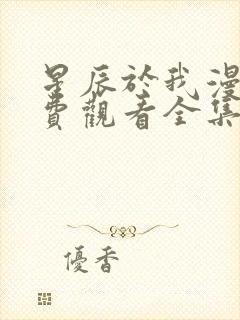 星辰於我漫
費觀看全集
優香